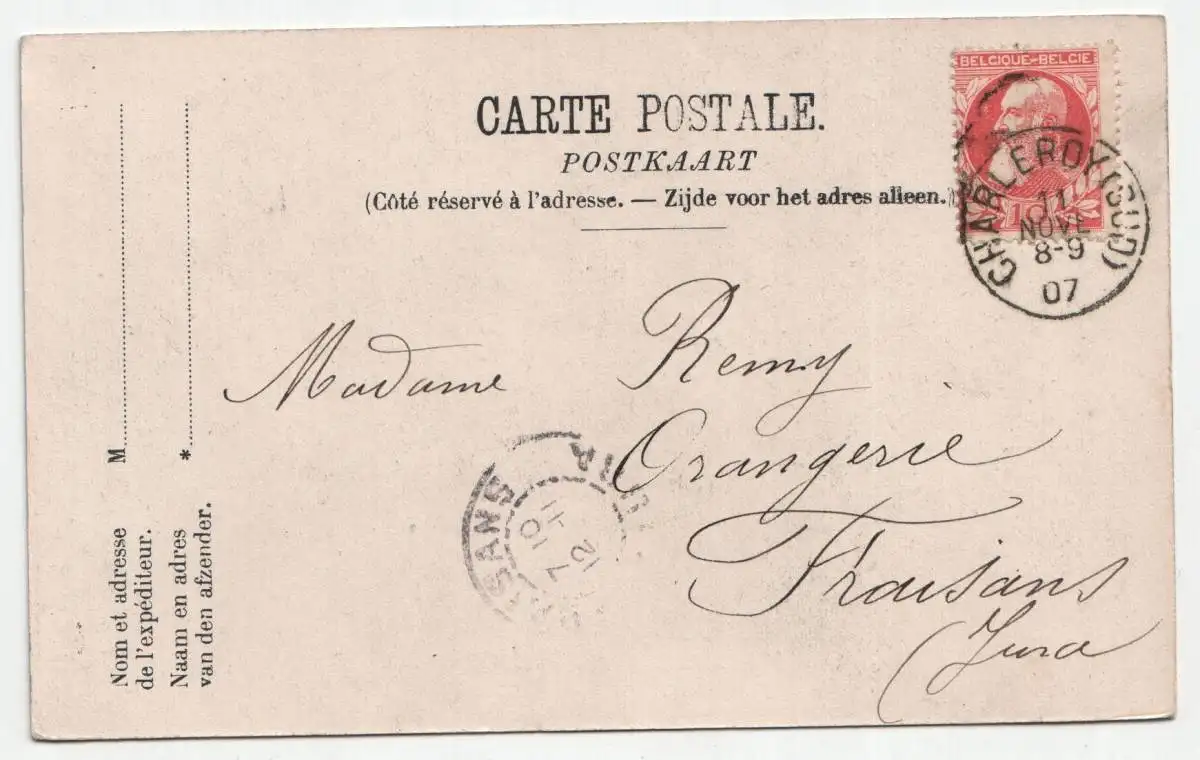 BELGIQUE-BELGIE
10
CARTE POSTALE.
POSTKAART
(Côté réservé à l'adresse. — Zijde voor het adres alleen.)
CHARLEROY (SUD)
11
NOVE
8-9
07
Madame Remy
Orangerie
Fraisans
(Jura
JURA
12
M
*
Nom et adresse
de l'expéditeur.
Naam en adres
van den afzender.